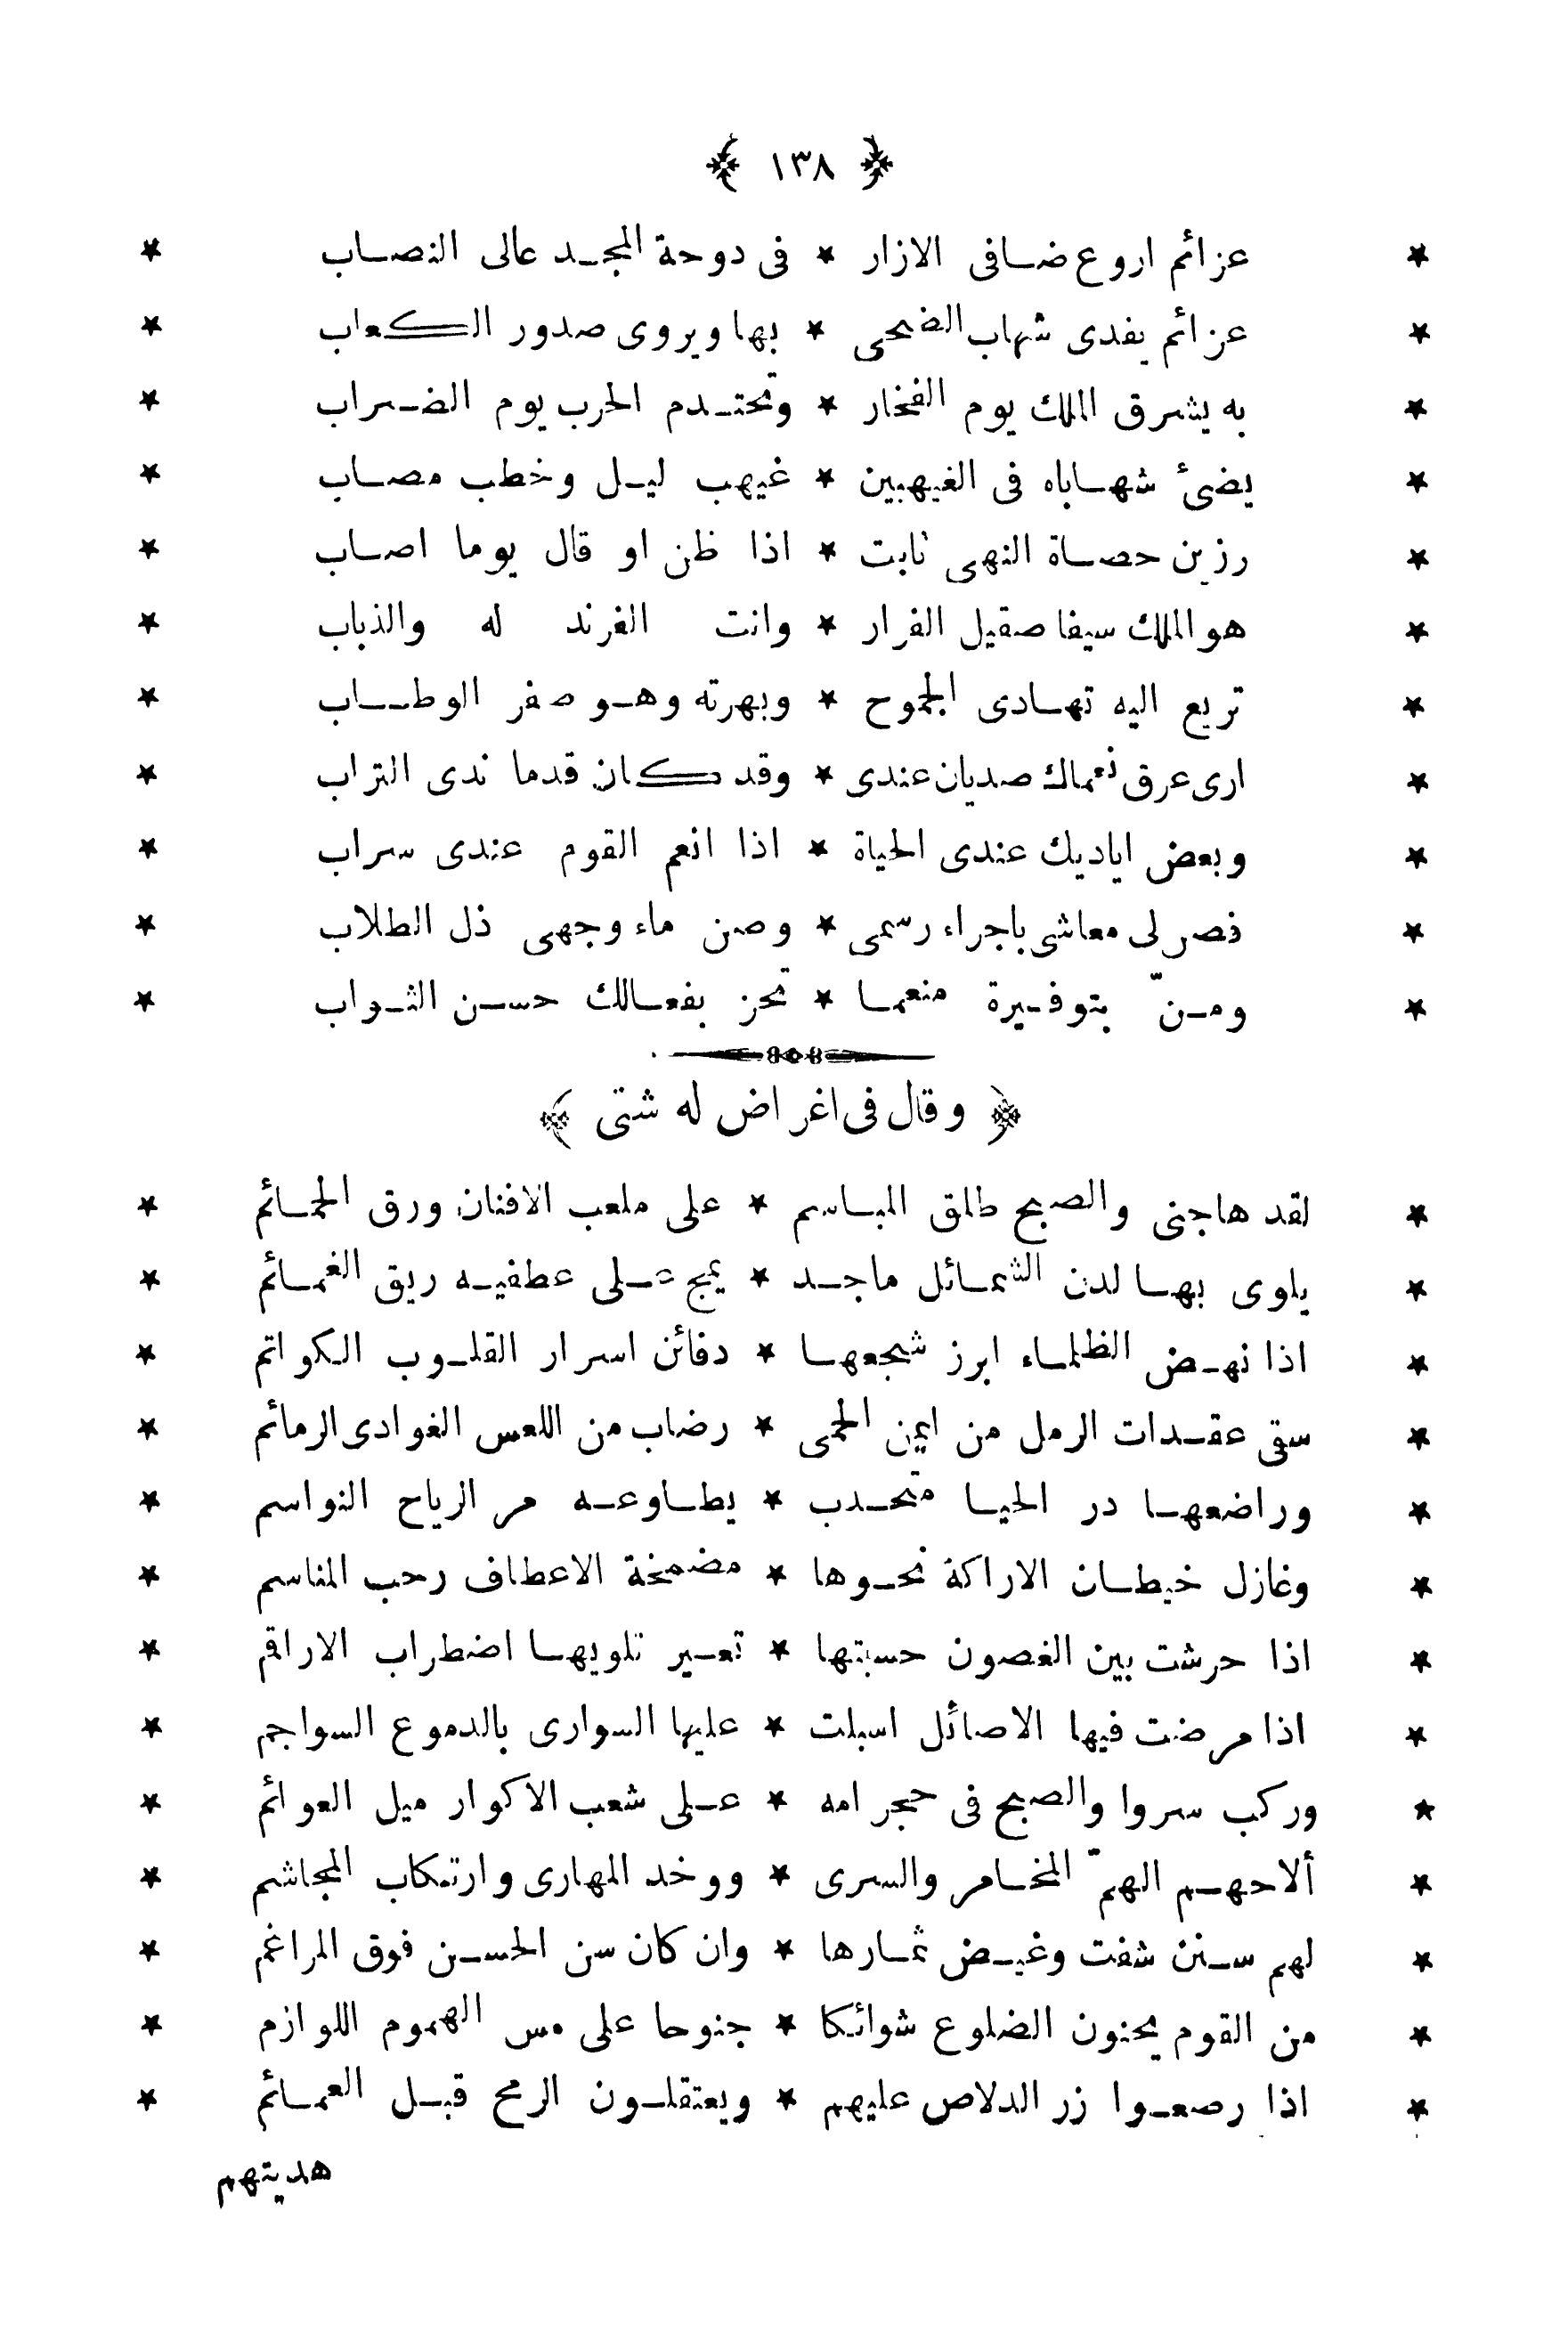 ﴿ ١٣٨ ﴾
* عزائم اروع ضافى الازار * فى دوحة المجد عالى النصاب *
* عزائم يفدى شهاب الضحى * بها ويروى صدور الكعاب *
* به يشرق الملك يوم الفخار * وتحتدم الحرب يوم الضراب *
* يضئ شهاباه فى الغيهبين * غيهب ليل وخطب مصاب *
* رزين حصاة النهى ثابت * اذا ظن او قال يوما اصاب *
* هو الملك سيفا صقيل الفرار * وانت الفرند له والذباب *
* تريع اليه تهادى الجموح * وبهرته وهو صفر الوطاب *
* ارى عرق نعماك صديان عندى * وقد كان قدما ندى التراب *
* وبعض اياديك عندى الحياة * اذا انعم القوم عندى سراب *
* فصر لى معاشى باجراء رسمى * وصن ماء وجهى ذل الطلاب *
* ومنّ بتوفيرة منعما * تحز بفعالك حسن الثواب *
﴿ وقال فى اغراض له شتى ﴾
* لقد هاجنى والصبح طلق المباسم * على ملعب الافنان ورق الحمائم *
* يلوى بها لدن الشمائل ماجد * يمج على عطفيه ريق الغمائم *
* اذا نهض الظلماء ابرز شجعها * دفائن اسرار القلوب الكواتم *
* سقى عقدات الرمل من ايمن الحمى * رضاب من اللعس الغوادى الرمائم *
* وراضعها در الحيا متحدب * يطاوعه مر الرياح النواسم *
* وغازل خيطان الاراكة نحوها * مضمخة الاعطاف رحب المناسم *
* اذا حرشت بين الغصون حسبتها * تعير تلويها اضطراب الاراقم *
* اذا مرضت فيها الاصائل اسبلت * عليها السوارى بالدموع السواجم *
* وركب سروا والصبح فى حجر امه * على شعب الاكوار ميل العوائم *
* ألاحهم الهمّ المخامر والسرى * ووخد المهارى وارتكاب المجاشم *
* لهم سنن شفت وغيض ثمارها * وان كان سن الحسن فوق المراغم *
* من القوم يحنون الضلوع شوائكا * جنوحا على مس الهموم اللوازم *
* اذا رصعوا زر الدلاص عليهم * ويعتقلون الرمح قبل العمائم *
هديتهم